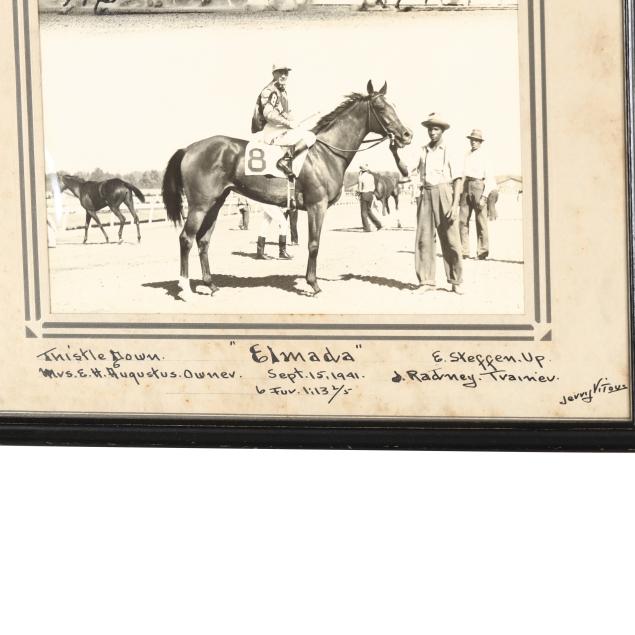 8
Thistle Down. "Elmada" E. Steffen. Up.
Mrs. E. H. Augustus. Owner. Sept. 15, 1941. J. Radney. Trainer.
6 Fur. 1:13 2/5
Jerry Vitous